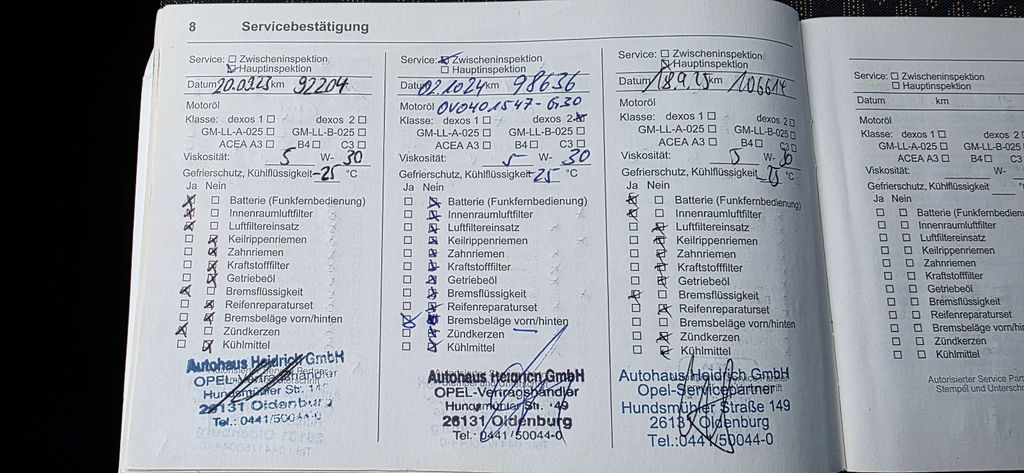 8 Servicebestätigung
Service: ☐ Zwischeninspektion
☒ Hauptinspektion
Datum 20.09.23 km 92204
Motoröl
Klasse: dexos 1 ☐ dexos 2 ☐
GM-LL-A-025 ☐ GM-LL-B-025 ☐
ACEA A3 ☐ B4 ☐ C3 ☐
Viskosität: 5 W- 30
Gefrierschutz, Kühlflüssigkeit -25 °C
Ja Nein
☒ ☐ Batterie (Funkfernbedienung)
☒ ☐ Innenraumluftfilter
☒ ☐ Luftfiltereinsatz
☐ ☒ Keilrippenriemen
☐ ☒ Zahnriemen
☐ ☒ Kraftstofffilter
☐ ☒ Getriebeöl
☒ ☐ Bremsflüssigkeit
☐ ☒ Reifenreparaturset
☐ ☒ Bremsbeläge vorn/hinten
☒ ☐ Zündkerzen
☐ ☒ Kühlmittel
Autohaus Heidrich GmbH
OPEL-Vertragshändler
Hundsmühler Str. 149
26131 Oldenburg
Tel.: 0441/50044-0
Service: ☒ Zwischeninspektion
☐ Hauptinspektion
Datum 02.10.24 km 98636
Motoröl OV0401547-G30
Klasse: dexos 1 ☐ dexos 2 ☒
GM-LL-A-025 ☐ GM-LL-B-025 ☐
ACEA A3 ☐ B4 ☐ C3 ☐
Viskosität: 5 W- 30
Gefrierschutz, Kühlflüssigkeit -25 °C
Ja Nein
☐ ☒ Batterie (Funkfernbedienung)
☐ ☒ Innenraumluftfilter
☐ ☒ Luftfiltereinsatz
☐ ☒ Keilrippenriemen
☐ ☒ Zahnriemen
☐ ☒ Kraftstofffilter
☐ ☒ Getriebeöl
☐ ☒ Bremsflüssigkeit
☐ ☒ Reifenreparaturset
☒ ☒ Bremsbeläge vorn/hinten
☐ ☒ Zündkerzen
☐ ☒ Kühlmittel
Autohaus Heidrich GmbH
OPEL-Vertragshändler
Hundsmühler Str. 149
26131 Oldenburg
Tel.: 0441/50044-0
Service: ☐ Zwischeninspektion
☒ Hauptinspektion
Datum 18.9.25 km 106614
Motoröl
Klasse: dexos 1 ☐ dexos 2 ☐
GM-LL-A-025 ☐ GM-LL-B-025 ☐
ACEA A3 ☐ B4 ☐ C3 ☐
Viskosität: 5 W- 30
Gefrierschutz, Kühlflüssigkeit -25 °C
Ja Nein
☒ ☐ Batterie (Funkfernbedienung)
☒ ☐ Innenraumluftfilter
☐ ☒ Luftfiltereinsatz
☐ ☒ Keilrippenriemen
☐ ☒ Zahnriemen
☐ ☒ Kraftstofffilter
☐ ☒ Getriebeöl
☒ ☐ Bremsflüssigkeit
☐ ☒ Reifenreparaturset
☐ ☐ Bremsbeläge vorn/hinten
☐ ☒ Zündkerzen
☐ ☒ Kühlmittel
Autohaus Heidrich GmbH
Opel-Servicepartner
Hundsmühler Straße 149
26131 Oldenburg
Tel.:0441/50044-0
Service: ☐ Zwischeninspektion
☐ Hauptinspektion
Datum km
Motoröl
Klasse: dexos 1 ☐ dexos 2
GM-LL-A-025 ☐ GM-LL-B-025
ACEA A3 ☐ B4 ☐ C3
Viskosität: W-
Gefrierschutz, Kühlflüssigkeit °C
Ja Nein
☐ ☐ Batterie (Funkfernbedienun
☐ ☐ Innenraumluftfilter
☐ ☐ Luftfiltereinsatz
☐ ☐ Keilrippenriemen
☐ ☐ Zahnriemen
☐ ☐ Kraftstofffilter
☐ ☐ Getriebeöl
☐ ☐ Bremsflüssigkeit
☐ ☐ Reifenreparaturset
☐ ☐ Bremsbeläge vorn/hinte
☐ ☐ Zündkerzen
☐ ☐ Kühlmittel
Autorisierter Service Part
Stempel und Unterschri